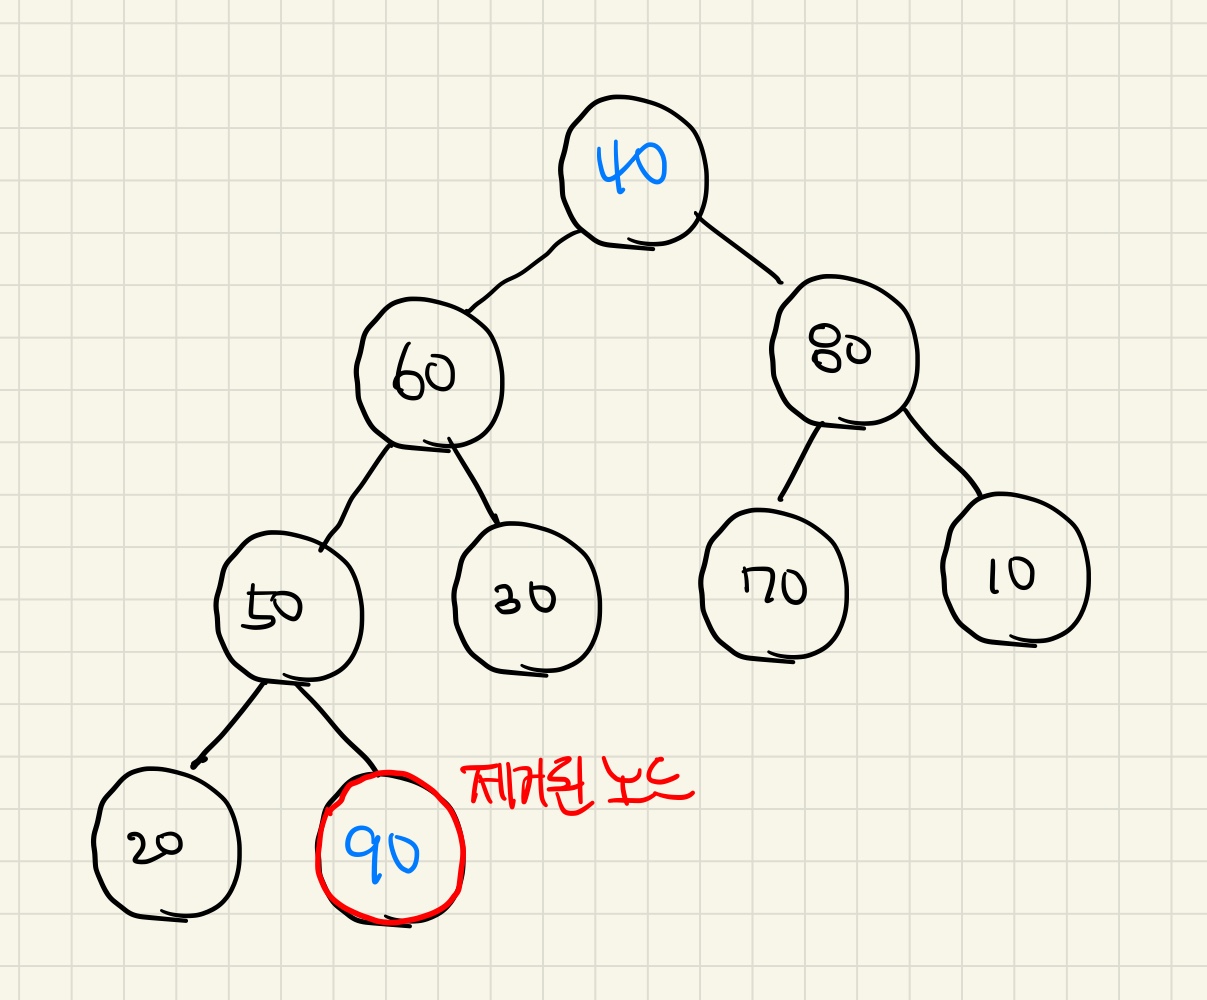 40
60
80
50
30
70
10
20
90
제거된 노드